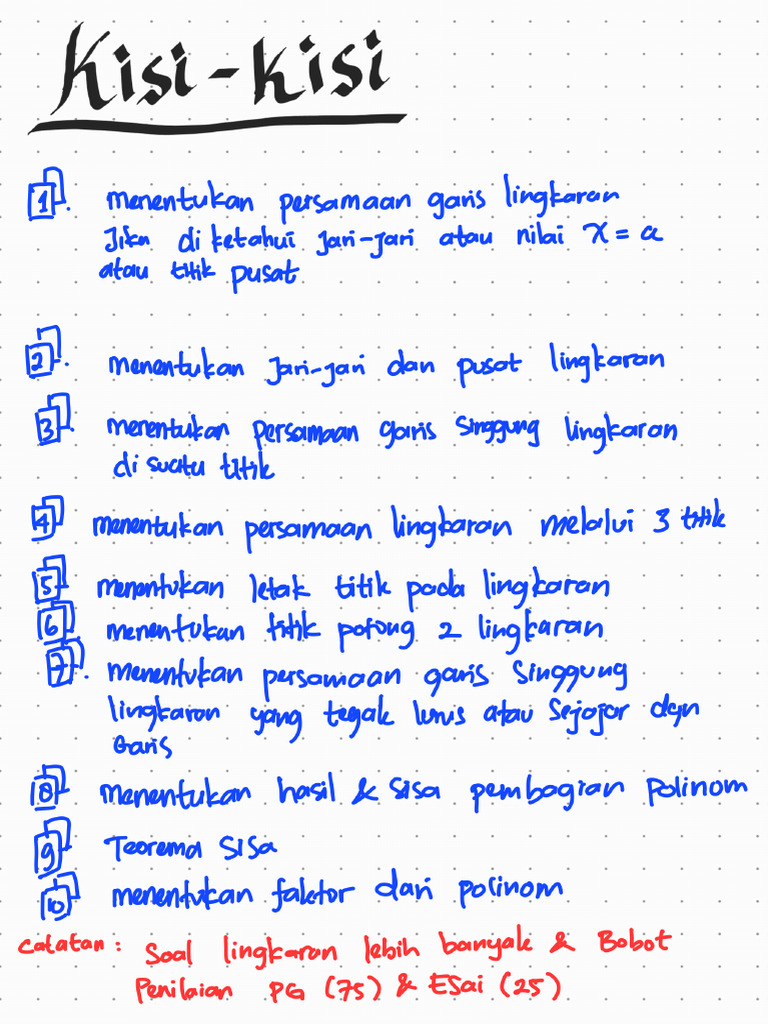 Kisi-kisi
1. menentukan persamaan garis lingkaran
Jika diketahui Jari-jari atau nilai x = a
atau titik pusat
2. menentukan Jari-jari dan pusat lingkaran
3. menentukan persamaan garis singgung lingkaran
di suatu titik
4. menentukan persamaan lingkaran melalui 3 titik
5. menentukan letak titik pada lingkaran
6. menentukan titik potong 2 lingkaran
7. menentukan persamaan garis singgung
lingkaran yang tegak lurus atau sejajar dgn
Garis
8. menentukan hasil & sisa pembagian Polinom
9. Teorema sisa
10. menentukan faktor dari polinom
Catatan: Soal lingkaran lebih banyak & Bobot
Penilaian PG (75) & ESai (25)